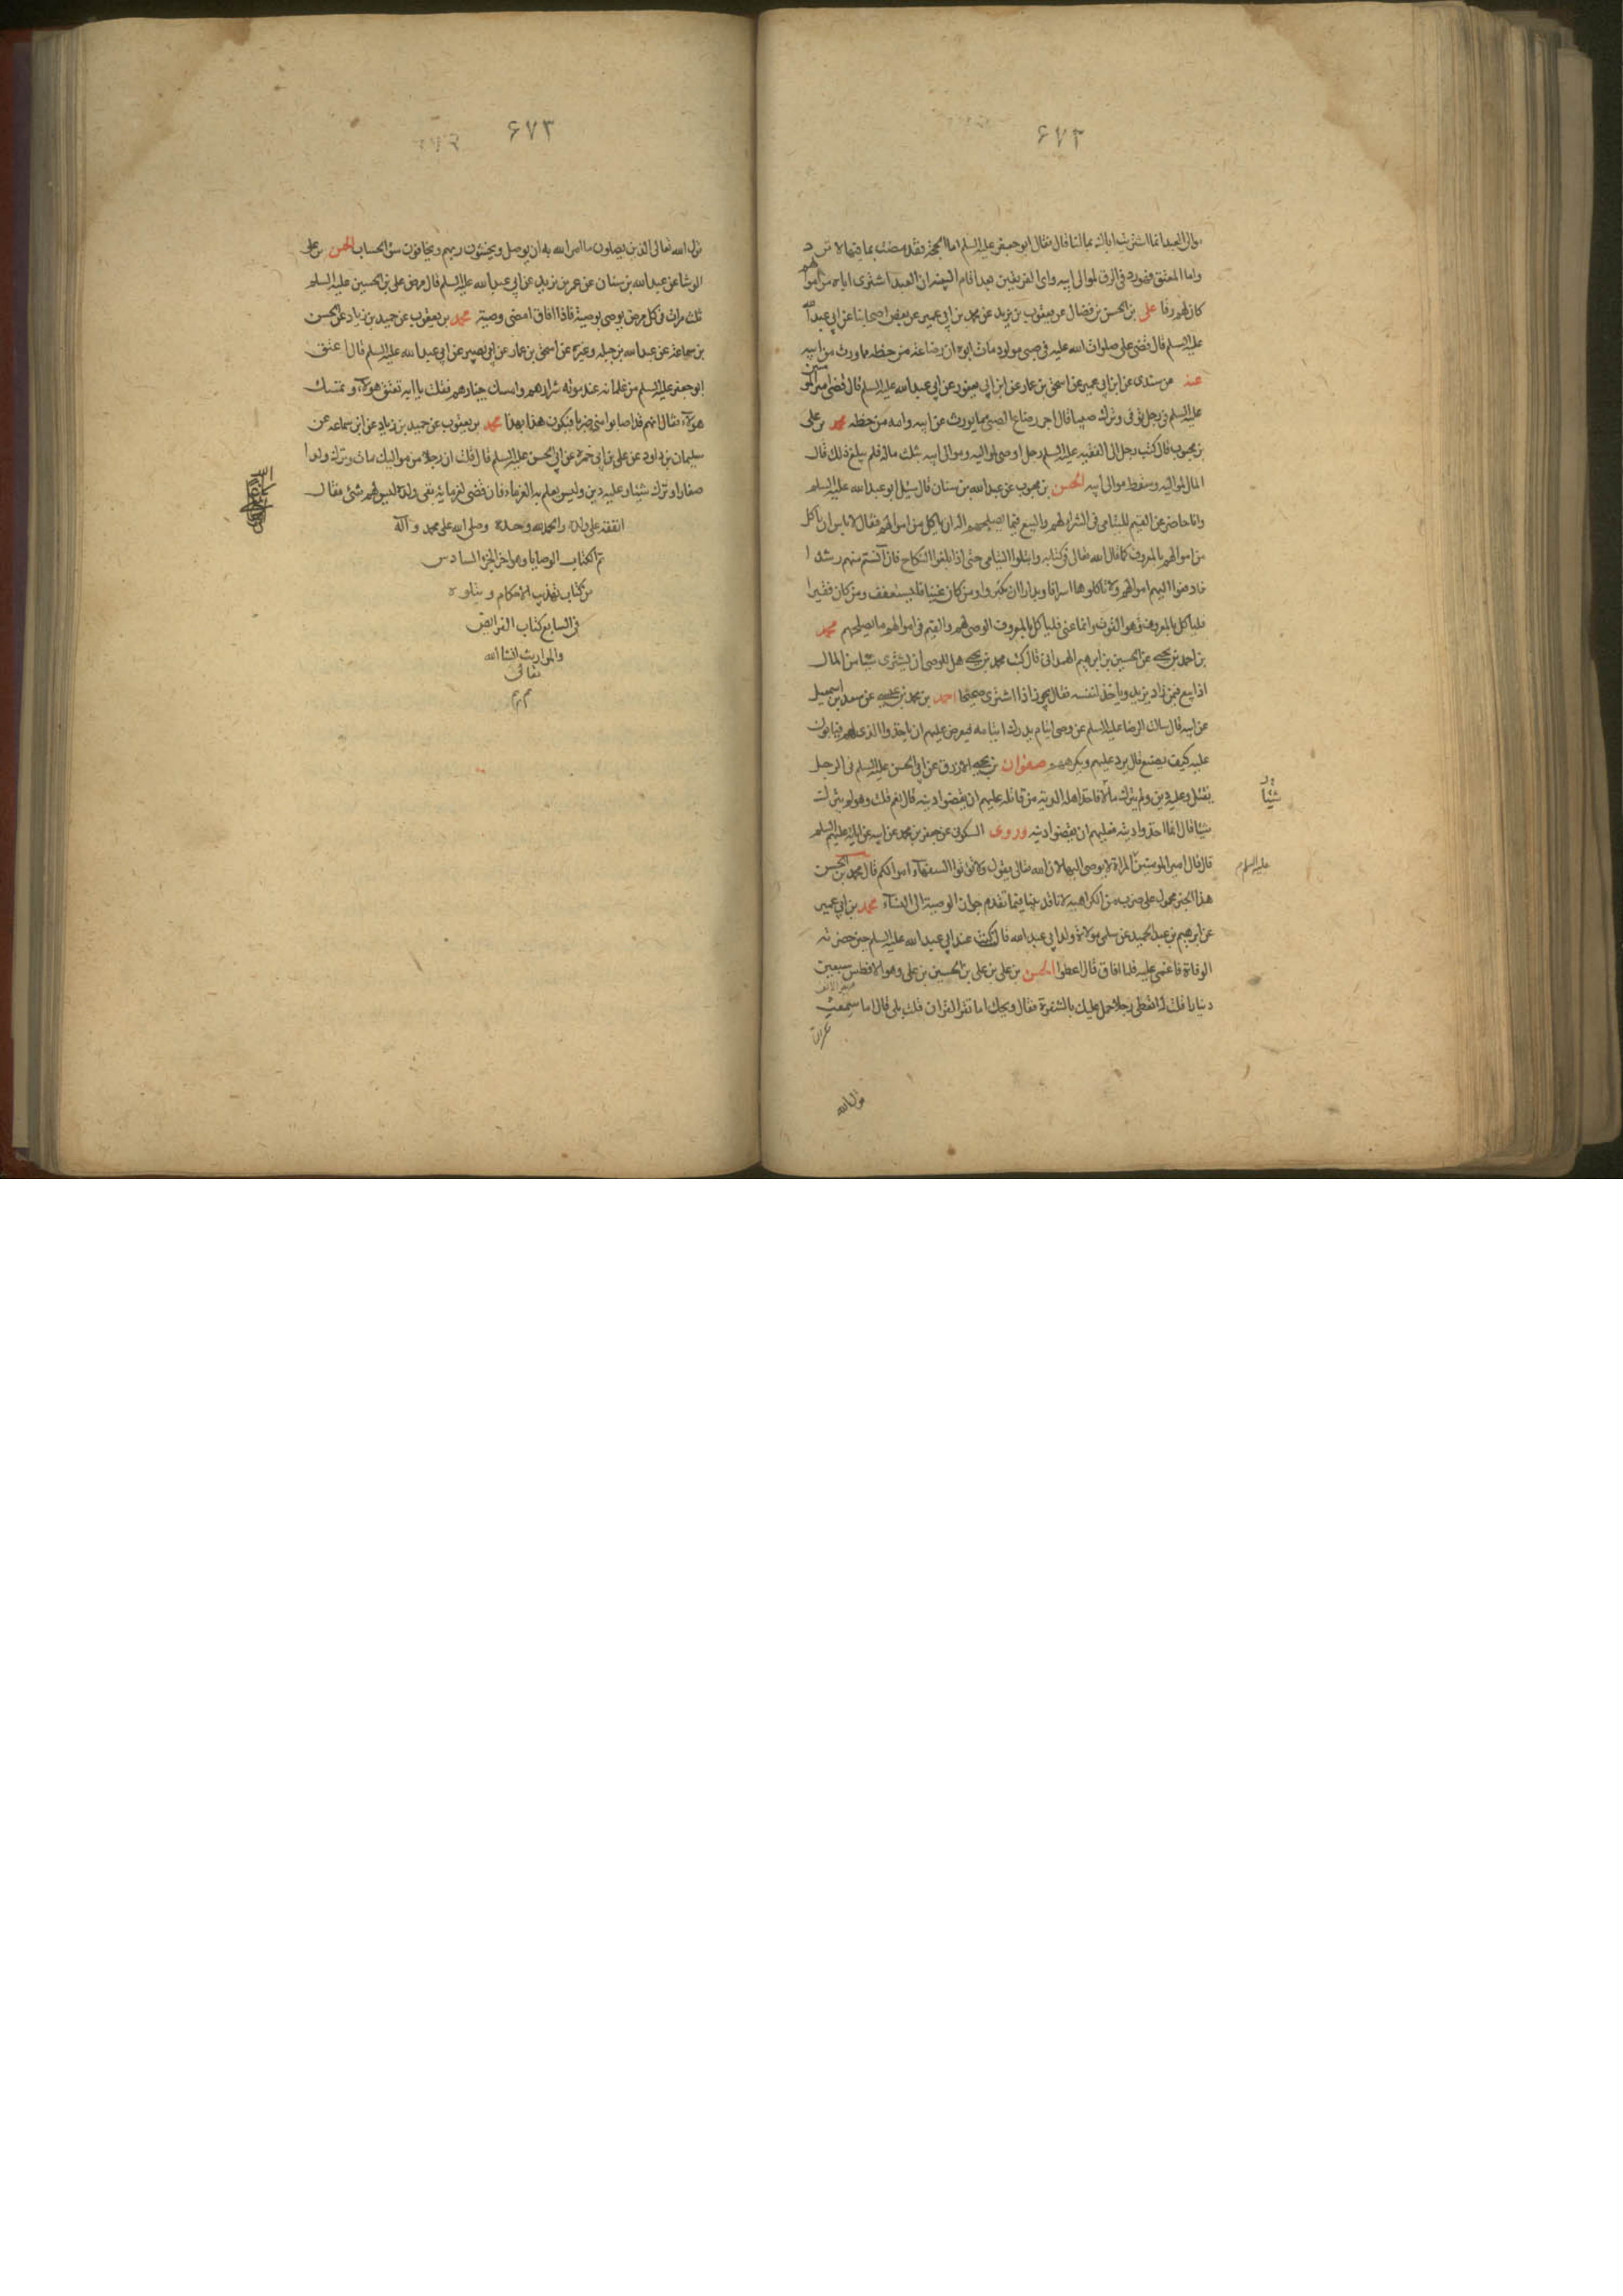 ۶۷۲
موالى العبد انما اشتريت اباك بمالنا فقال فقال ابو جعفر عليه السلم اما الحجة فقد مضت بما فيها لا ترد
واما المعتق فهو رد فى الرق لموالى ابيه واى الفريقين بعد اقام البينة ان العبد اشترى اباه من اموالهم
كان لهم رقا على بن الحسن بن فضال عن يعقوب بن يزيد عن محمد بن ابى عمير عن بعض اصحابنا عن ابى عبد الله
عليه السلم قال قضى على صلوات الله عليه فى صبى مولود مات ابوه ان رضاعه من حظه مما ورث من ابيه
عنه عن سندى عن ابن ابى عمير عن اسحق بن عمار عن ابن ابى يعفور عن ابى عبد الله عليه السلم قال قضى امير المؤمنين
عليه السلم فى رجل توفى وترك صبيا قال اجر رضاع الصبى مما يورث من ابيه وامه من حظه محمد بن على
بن محبوب قال كتب رجل الى الفقيه عليه السلم رجل اوصى لمواليه وموالى ابيه بثلث ماله فلم يبلغ ذلك قال
المال لمواليه وسقط موالى ابيه الحسن بن محبوب عن عبد الله بن سنان قال سئل ابو عبد الله عليه السلم
وانا حاضر عن القيم لليتامى فى الشراء لهم والبيع فيما يصلحهم اله ان ياكل من اموالهم فقال لا باس ان ياكل
من اموالهم بالمعروف كما قال الله تعالى فى كتابه وابتلوا اليتامى حتى اذا بلغوا النكاح فان آنستم منهم رشدا
فادفعوا اليهم اموالهم ولا تاكلوها اسرافا وبدارا ان يكبروا ومن كان غنيا فليستعفف ومن كان فقيرا
فلياكل بالمعروف وهو القوت وانما عنى فلياكل بالمعروف الوصى لهم والقيم فى اموالهم ما يصلحهم محمد
بن احمد بن يحيى عن الحسين بن ابرهيم الهمدانى قال كتب محمد بن يحيى هل للوصى ان يشترى شيئا من المال
اذا بيع فيمن زاد يزيد وياخذ لنفسه فقال يجوز اذا اشترى صحيحا احمد بن محمد بن عيسى عن سعد بن اسمعيل
عن ابيه قال سالت الرضا عليه السلم عن وصى ايتام يدرك ايتامه فيعرض عليهم ان ياخذوا الذى لهم فيابون
عليه كيف يصنع قال يرد عليهم ويكرههم صفوان بن يحيى الازرق عن ابى الحسن عليه السلم فى الرجل
يقتل وعليه دين ولم يترك مالا فاخذ اهله الدية من قاتله عليهم ان يقضوا دينه قال نعم قلت وهو لم يترك
شيئا
شيئا قال انما اخذوا ديته فعليهم ان يقضوا دينه وروى السكونى عن جعفر بن محمد عن ابيه عن ابائه عليهم السلم
قال قال امير المؤمنين المراة لا يوصى اليها لان الله تعالى يقول ولا تؤتوا السفهاء اموالكم قال محمد بن الحسن
عليه السلام
هذا الخبر محمول على ضرب من الكراهية لانا قد بينا فيما تقدم جواز الوصية الى النساء محمد بن ابى عمير
عن ابرهيم بن عبد الحميد عن سلمى مولاة ولد ابى عبد الله قال كنت عند ابى عبد الله عليه السلم حين حضرته
الوفاة فاغمى عليه فلما افاق قال اعطوا الحسن بن على بن على بن الحسين بن على وهو الافطس سبعين
دينارا قلت له اتعطى رجلا حمل عليك بالشفرة فقال ويحك اما تقرا القران قلت بلى قال اما سمعت
قول الله
۶۷۳
قول الله تعالى الذين يصلون ما امر الله به ان يوصل ويخشون ربهم ويخافون سوء الحساب الحسن بن على
الوشا عن عبد الله بن سنان عن عمر بن يزيد عن ابى عبد الله عليه السلم قال مرض على بن الحسين عليه السلم
ثلث مرات فى كل مرض يوصى بوصية فاذا افاق امضى وصيته محمد بن يعقوب عن حميد بن زياد عن الحسن
بن سماعة عن عبد الله بن جبلة وغيره عن اسحق بن عمار عن ابى بصير عن ابى عبد الله عليه السلم قال اعتق
ابو جعفر عليه السلم من غلمانه عند موته شرارهم وامسك خيارهم فقلت يا ابه تعتق هولاء وتمسك
هولاء فقال انهم قد اصابوا منى ضربا فيكون هذا بهذا محمد بن يعقوب عن حميد بن زياد عن ابن سماعه عن
سليمان بن داود عن على بن ابى حمزه عن ابى الحسن عليه السلم قال قلت ان رجلا من مواليك مات وترك ولدا
صغارا وترك شيئا وعليه دين وليس يعلم به الغرماء فان قضى لغرمائه بقى ولده ليس لهم شئ فقال
انفقه على ولده والحمد لله وحده وصلى الله على محمد وآله
تم كتاب الوصايا وهو اخر الجزء السادس
من كتاب تهذيب الاحكام ويتلوه
فى السابع كتاب الفرايض
والمواريث انشا الله
تعالى